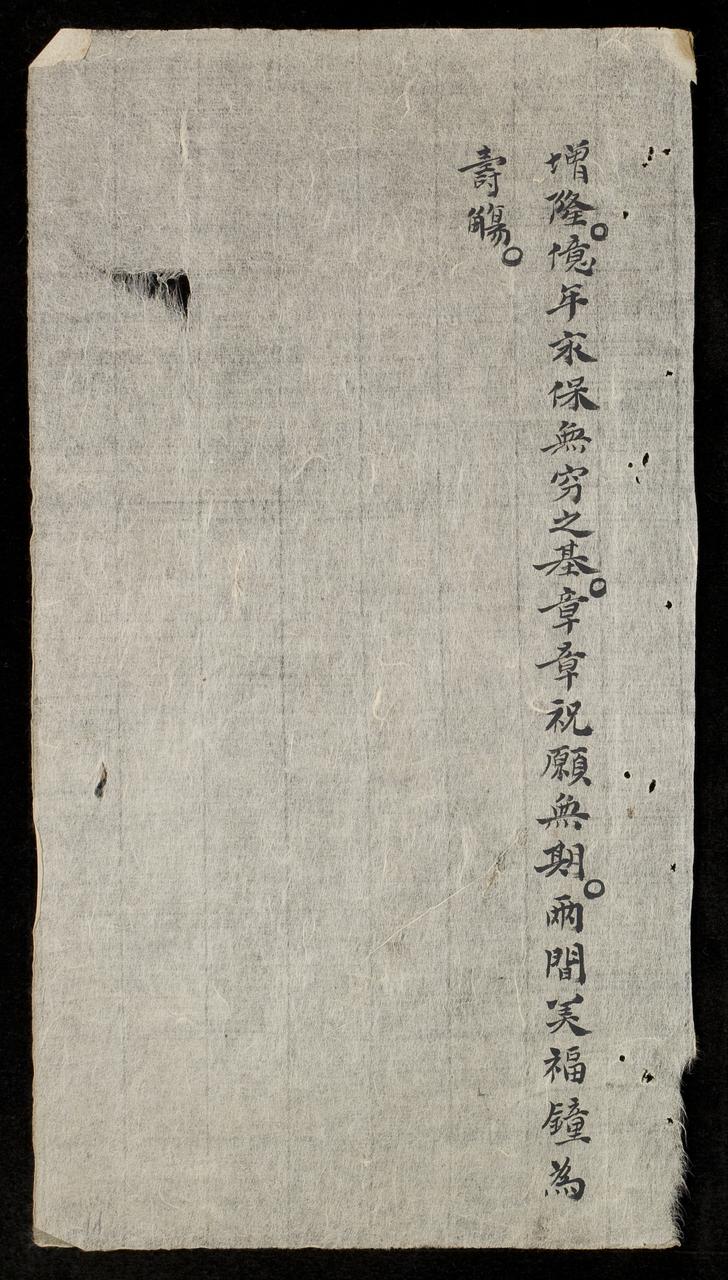 增隆。億年永保無穷之基。章章祝願無期。两間美福鐘為
壽觴。